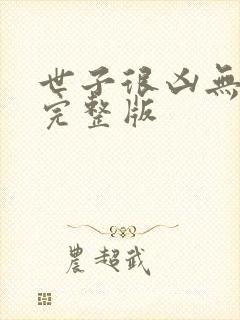 世子很凶無
完整版
農超武